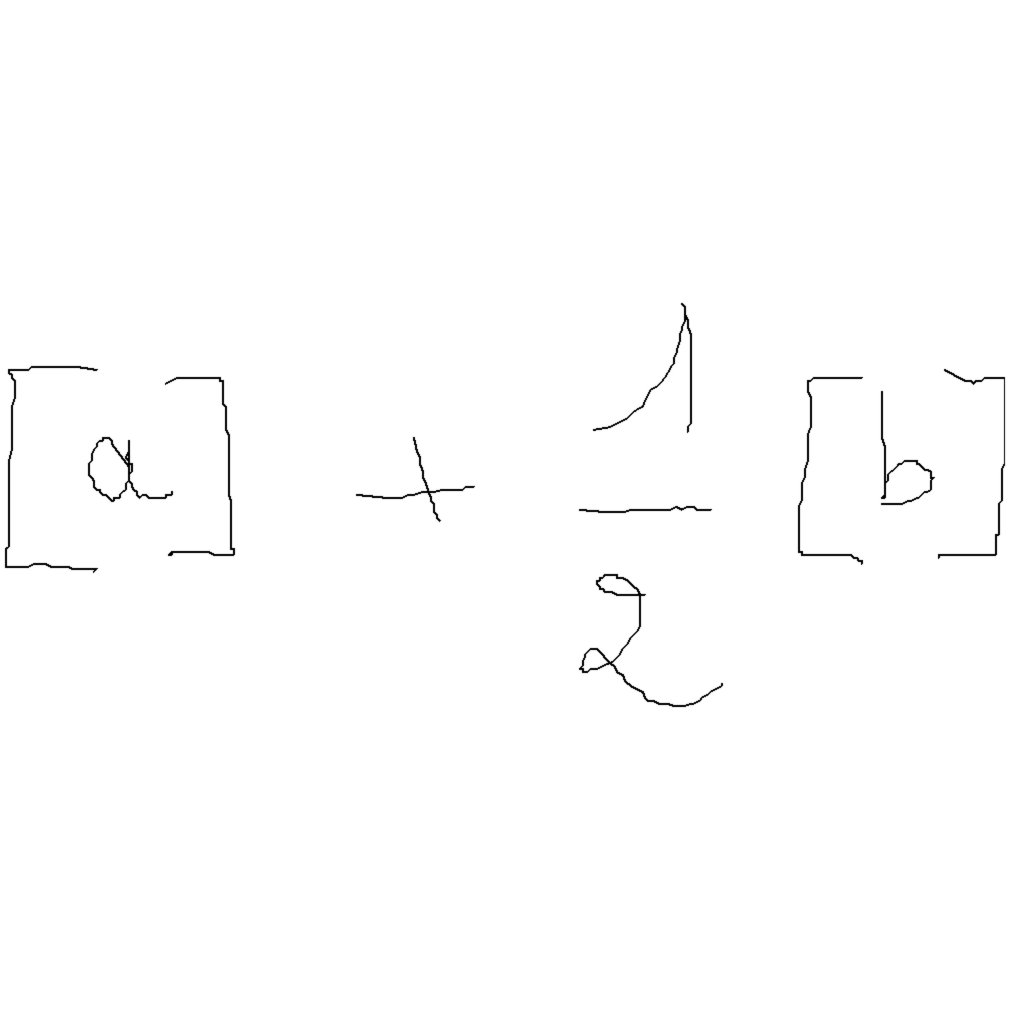 [a] + \frac{1}{2} [b]